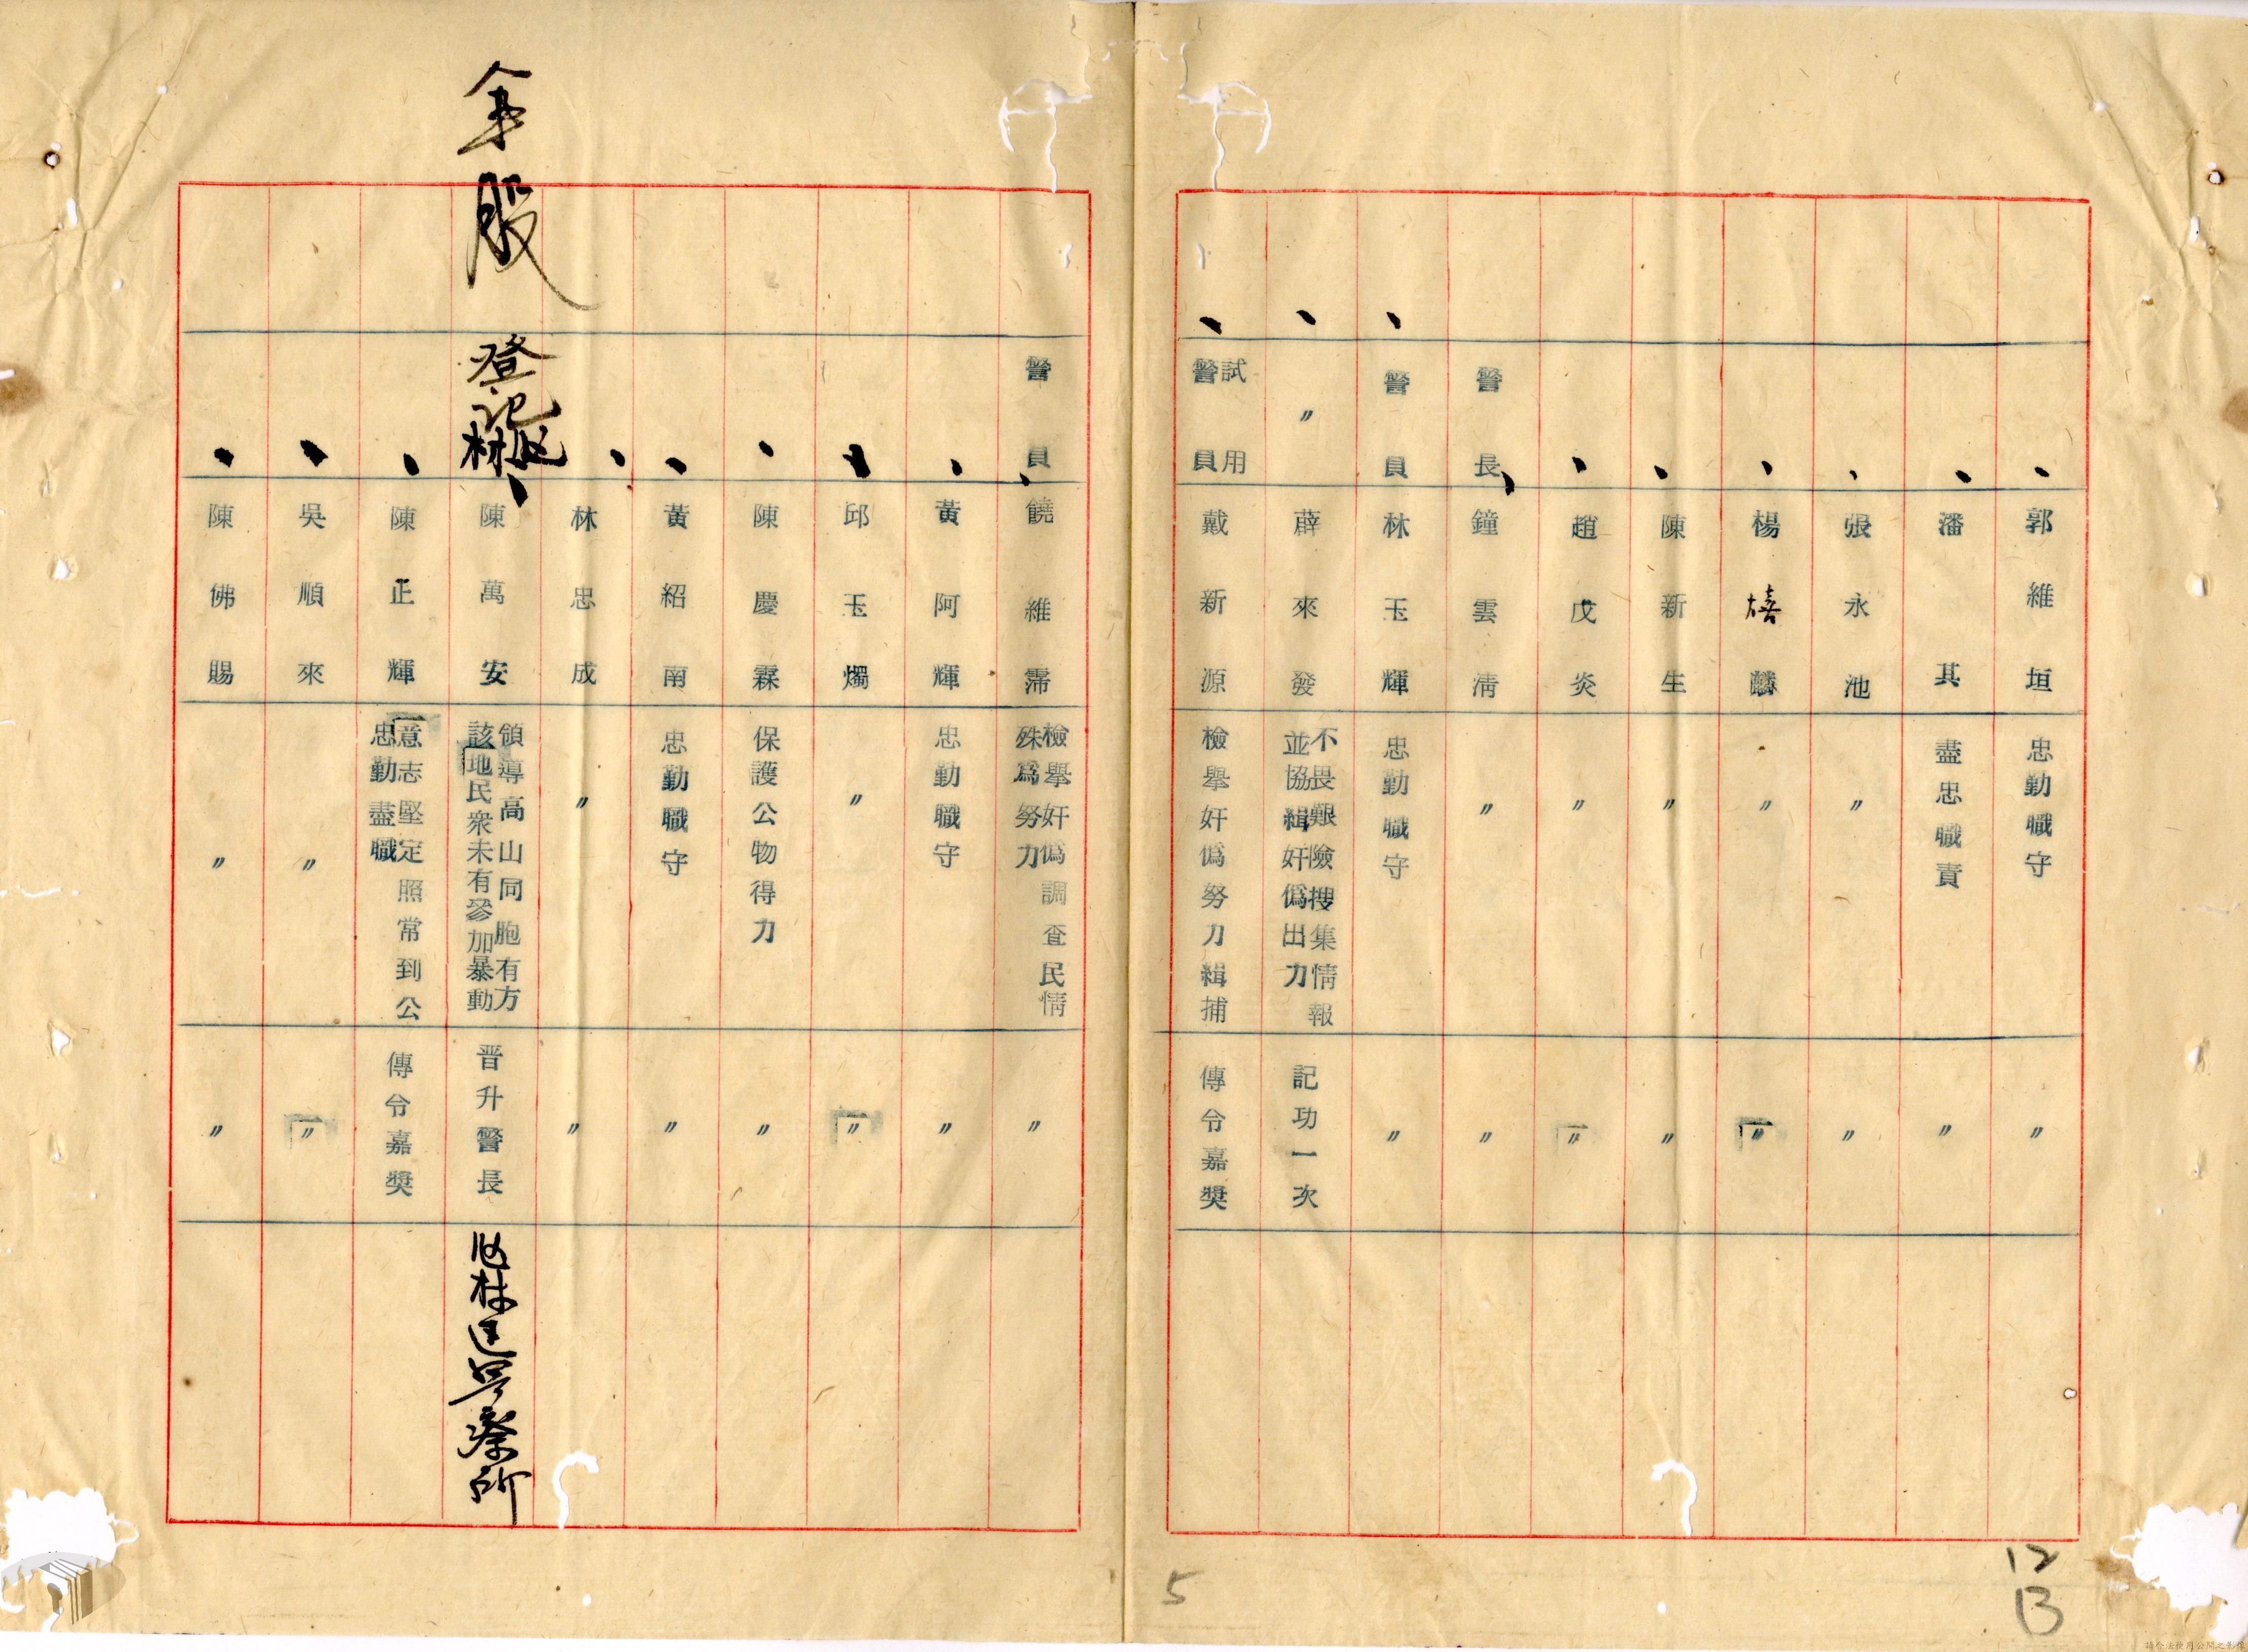 郭維垣 忠勤職守 〃
潘其 盡忠職責 〃
張永池 〃 〃
楊禧麟 〃 〃
陳新生 〃 〃
趙戊炎 〃 〃
警長 鐘雲清 〃 〃
警員 林玉輝 忠勤職守 〃
〃 薜來發 不畏艱險搜集情報
並協緝奸僞出力 記功一次
試用
警員 戴新源 檢舉奸僞努力緝捕 傳令嘉獎
警員 饒維霈 檢舉奸僞調查民情
殊爲努力 〃
黃阿輝 忠勤職守 〃
邱玉燭 〃 〃
陳慶霖 保護公物得力 〃
黃紹南 忠勤職守 〃
林忠成 〃 〃
登記
陳萬安 領導高山同胞有方
該地民衆未有參加暴動 晋升警長
陳正輝 意志堅定照常到公
忠勤盡職 傳令嘉獎
吳順來 〃 〃
陳佛賜 〃 〃
5
12
13
請合法使用公開之影像